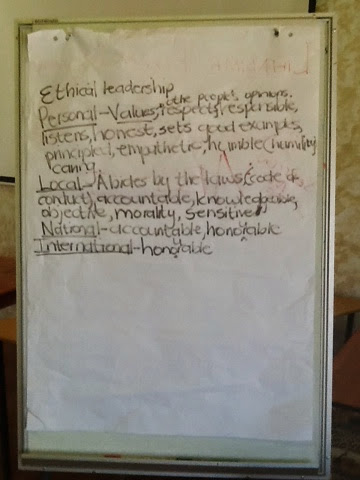 Ethical leadership
Personal - Values, respects, responsible,
other people's opinions.
listens, honest, sets good examples,
principled, empathetic, humble (humility
caring
Local - Abides by the laws (code of
conduct), accountable, knowledgeable,
objective, morality, sensitive
National - accountable, honorable
International - honorable